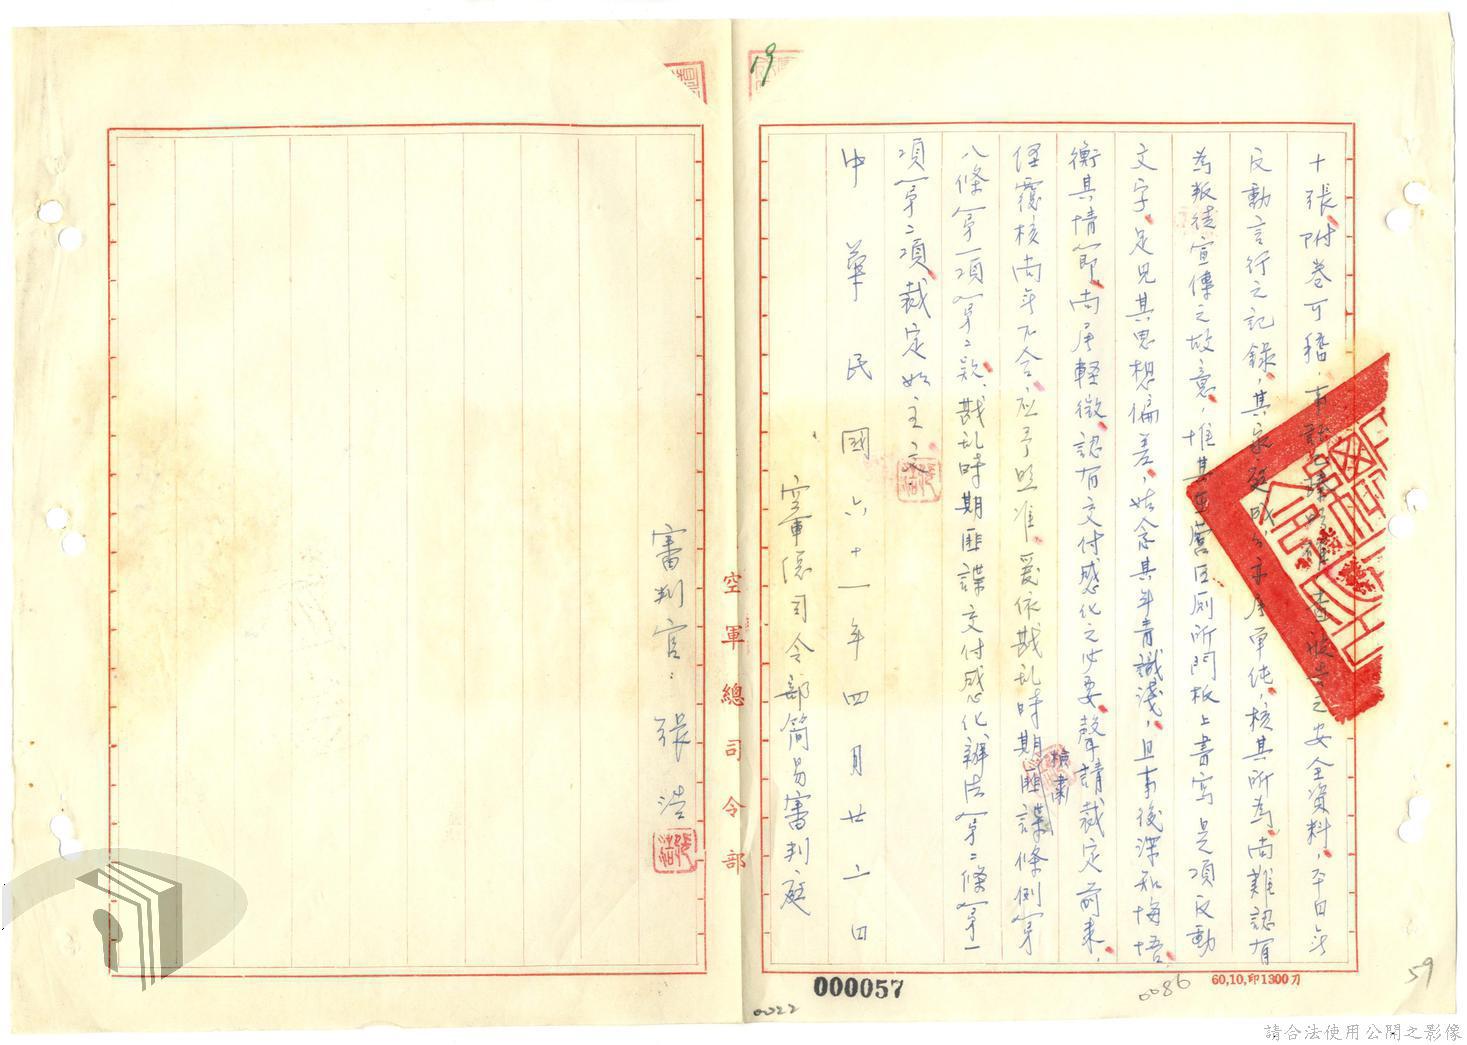 十張附卷可稽，事証已臻明確，查被告之安全資料，平日無
反動言行之記錄，其家庭成分亦屬單純，核其所為，尚難認有
為叛徒宣傳之故意，惟其在營區厠所門板上書寫是項反動
文字，足見其思想偏差，姑念其年青識淺，且事後深知悔悟，
衡其情節，尚屬輕微，認有交付感化之必要，聲請裁定前來，
經覆核尚無不合，應予照准，爰依戡乱時期檢肅匪諜條例第
八條第一項第二款、戡乱時期匪諜交付感化辦法第二條第一
項第二項，裁定如主文。
中華民國六十一年四月廿二日
空軍總司令部簡易審判庭
審判官：張浩
空軍總司令部
19
000057
0022
0086
60,10,印1300刀
59
請合法使用公開之影像